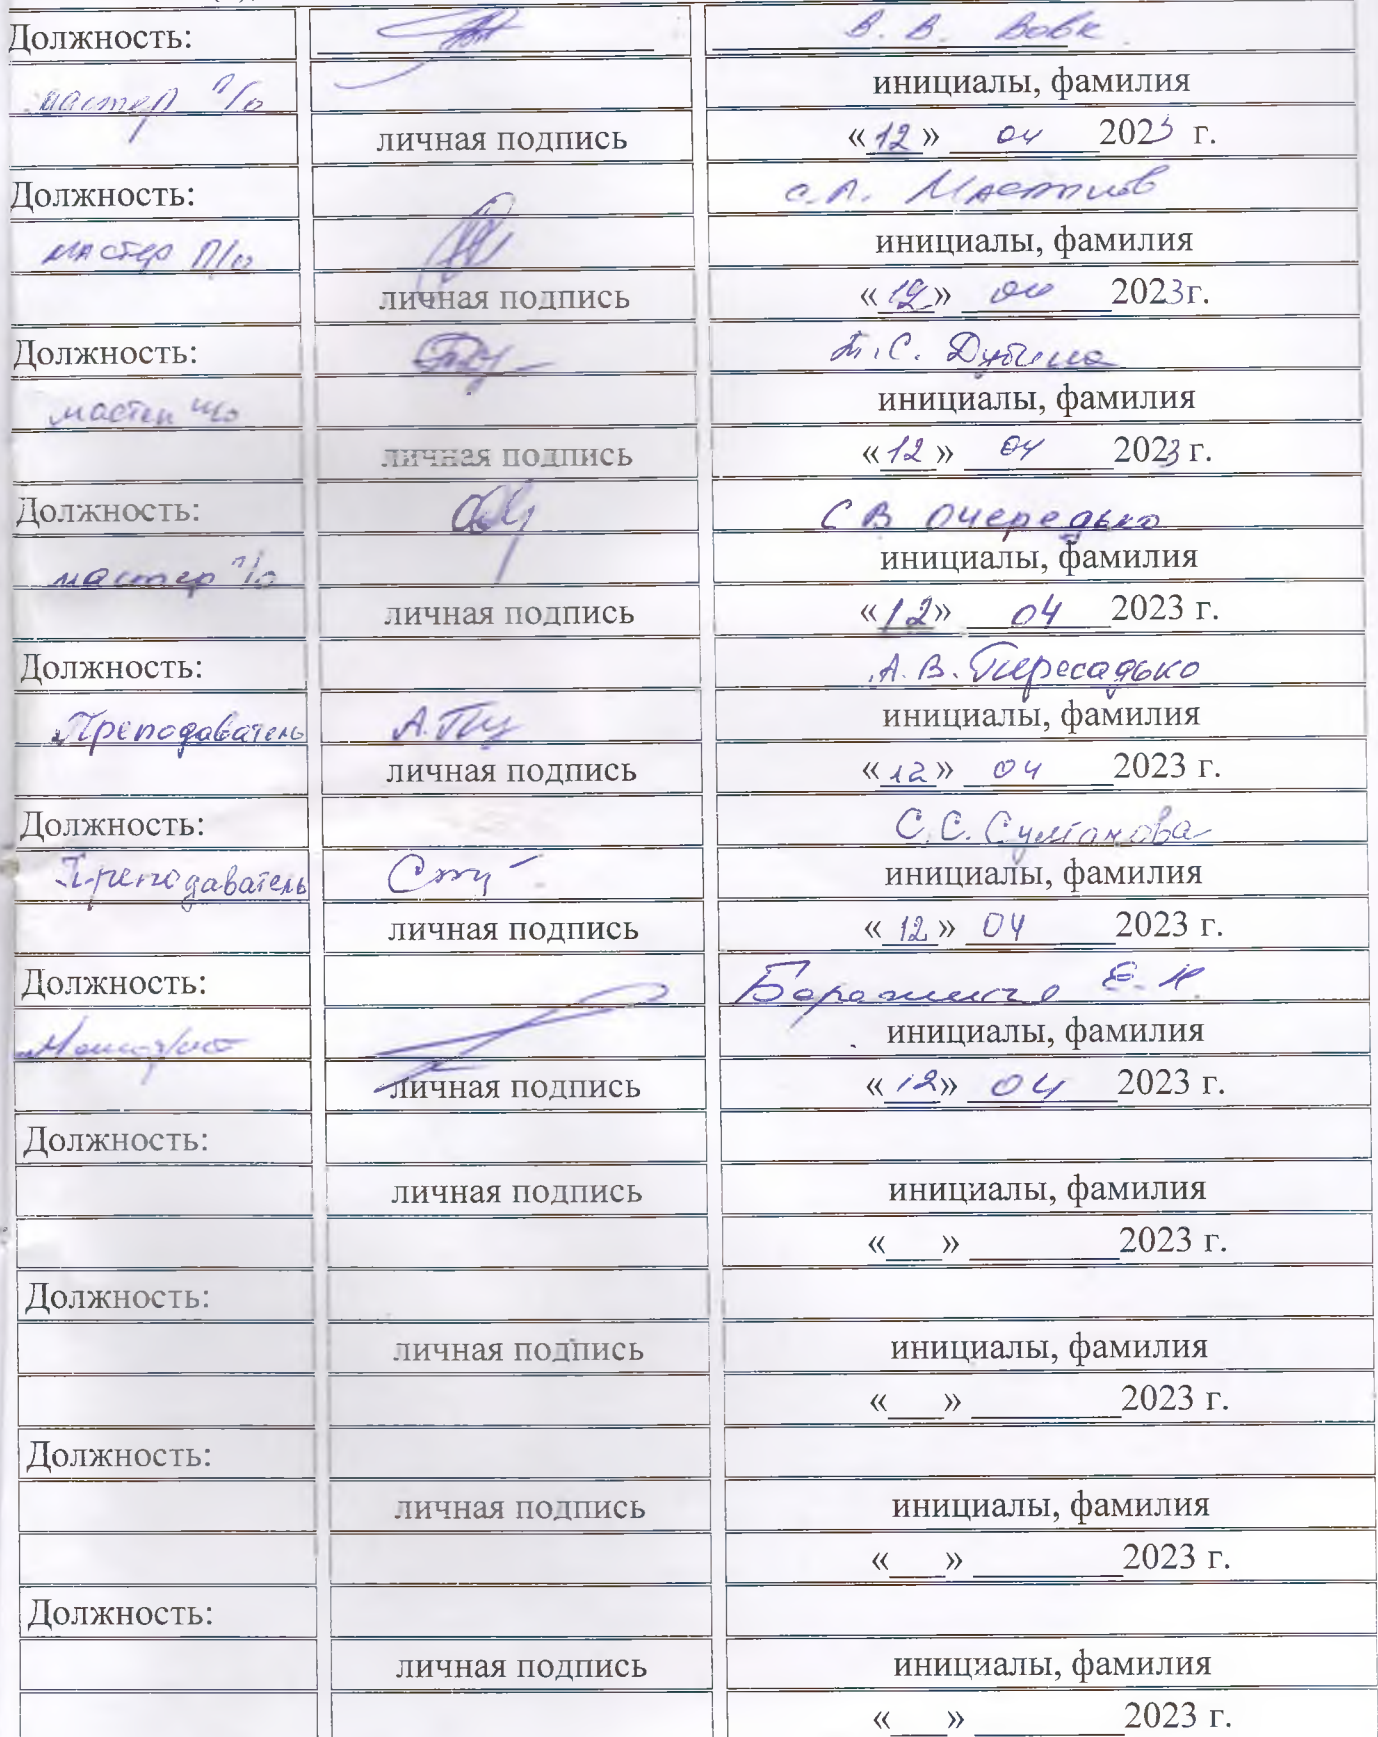 Должность: В. В. Вовк
мастер п/о инициалы, фамилия
личная подпись «12» 04 2023 г.
Должность: С.А.
мастер п/о инициалы, фамилия
личная подпись «12» 04 2023г.
Должность: Т.С. Дубина
мастер п/о инициалы, фамилия
личная подпись «12» 04 2023 г.
Должность: С В Очередько
мастер п/о инициалы, фамилия
личная подпись «12» 04 2023 г.
Должность: А. В. Пересадько
Преподаватель инициалы, фамилия
личная подпись «12» 04 2023 г.
Должность: С. С. Султанова
Преподаватель инициалы, фамилия
личная подпись «12» 04 2023 г.
Должность:
инициалы, фамилия
личная подпись «12» 04 2023 г.
Должность:
личная подпись инициалы, фамилия
«___» ________2023 г.
Должность:
личная подпись инициалы, фамилия
«___» ________2023 г.
Должность:
личная подпись инициалы, фамилия
«___» ________2023 г.
Должность:
личная подпись инициалы, фамилия
«___» ________2023 г.